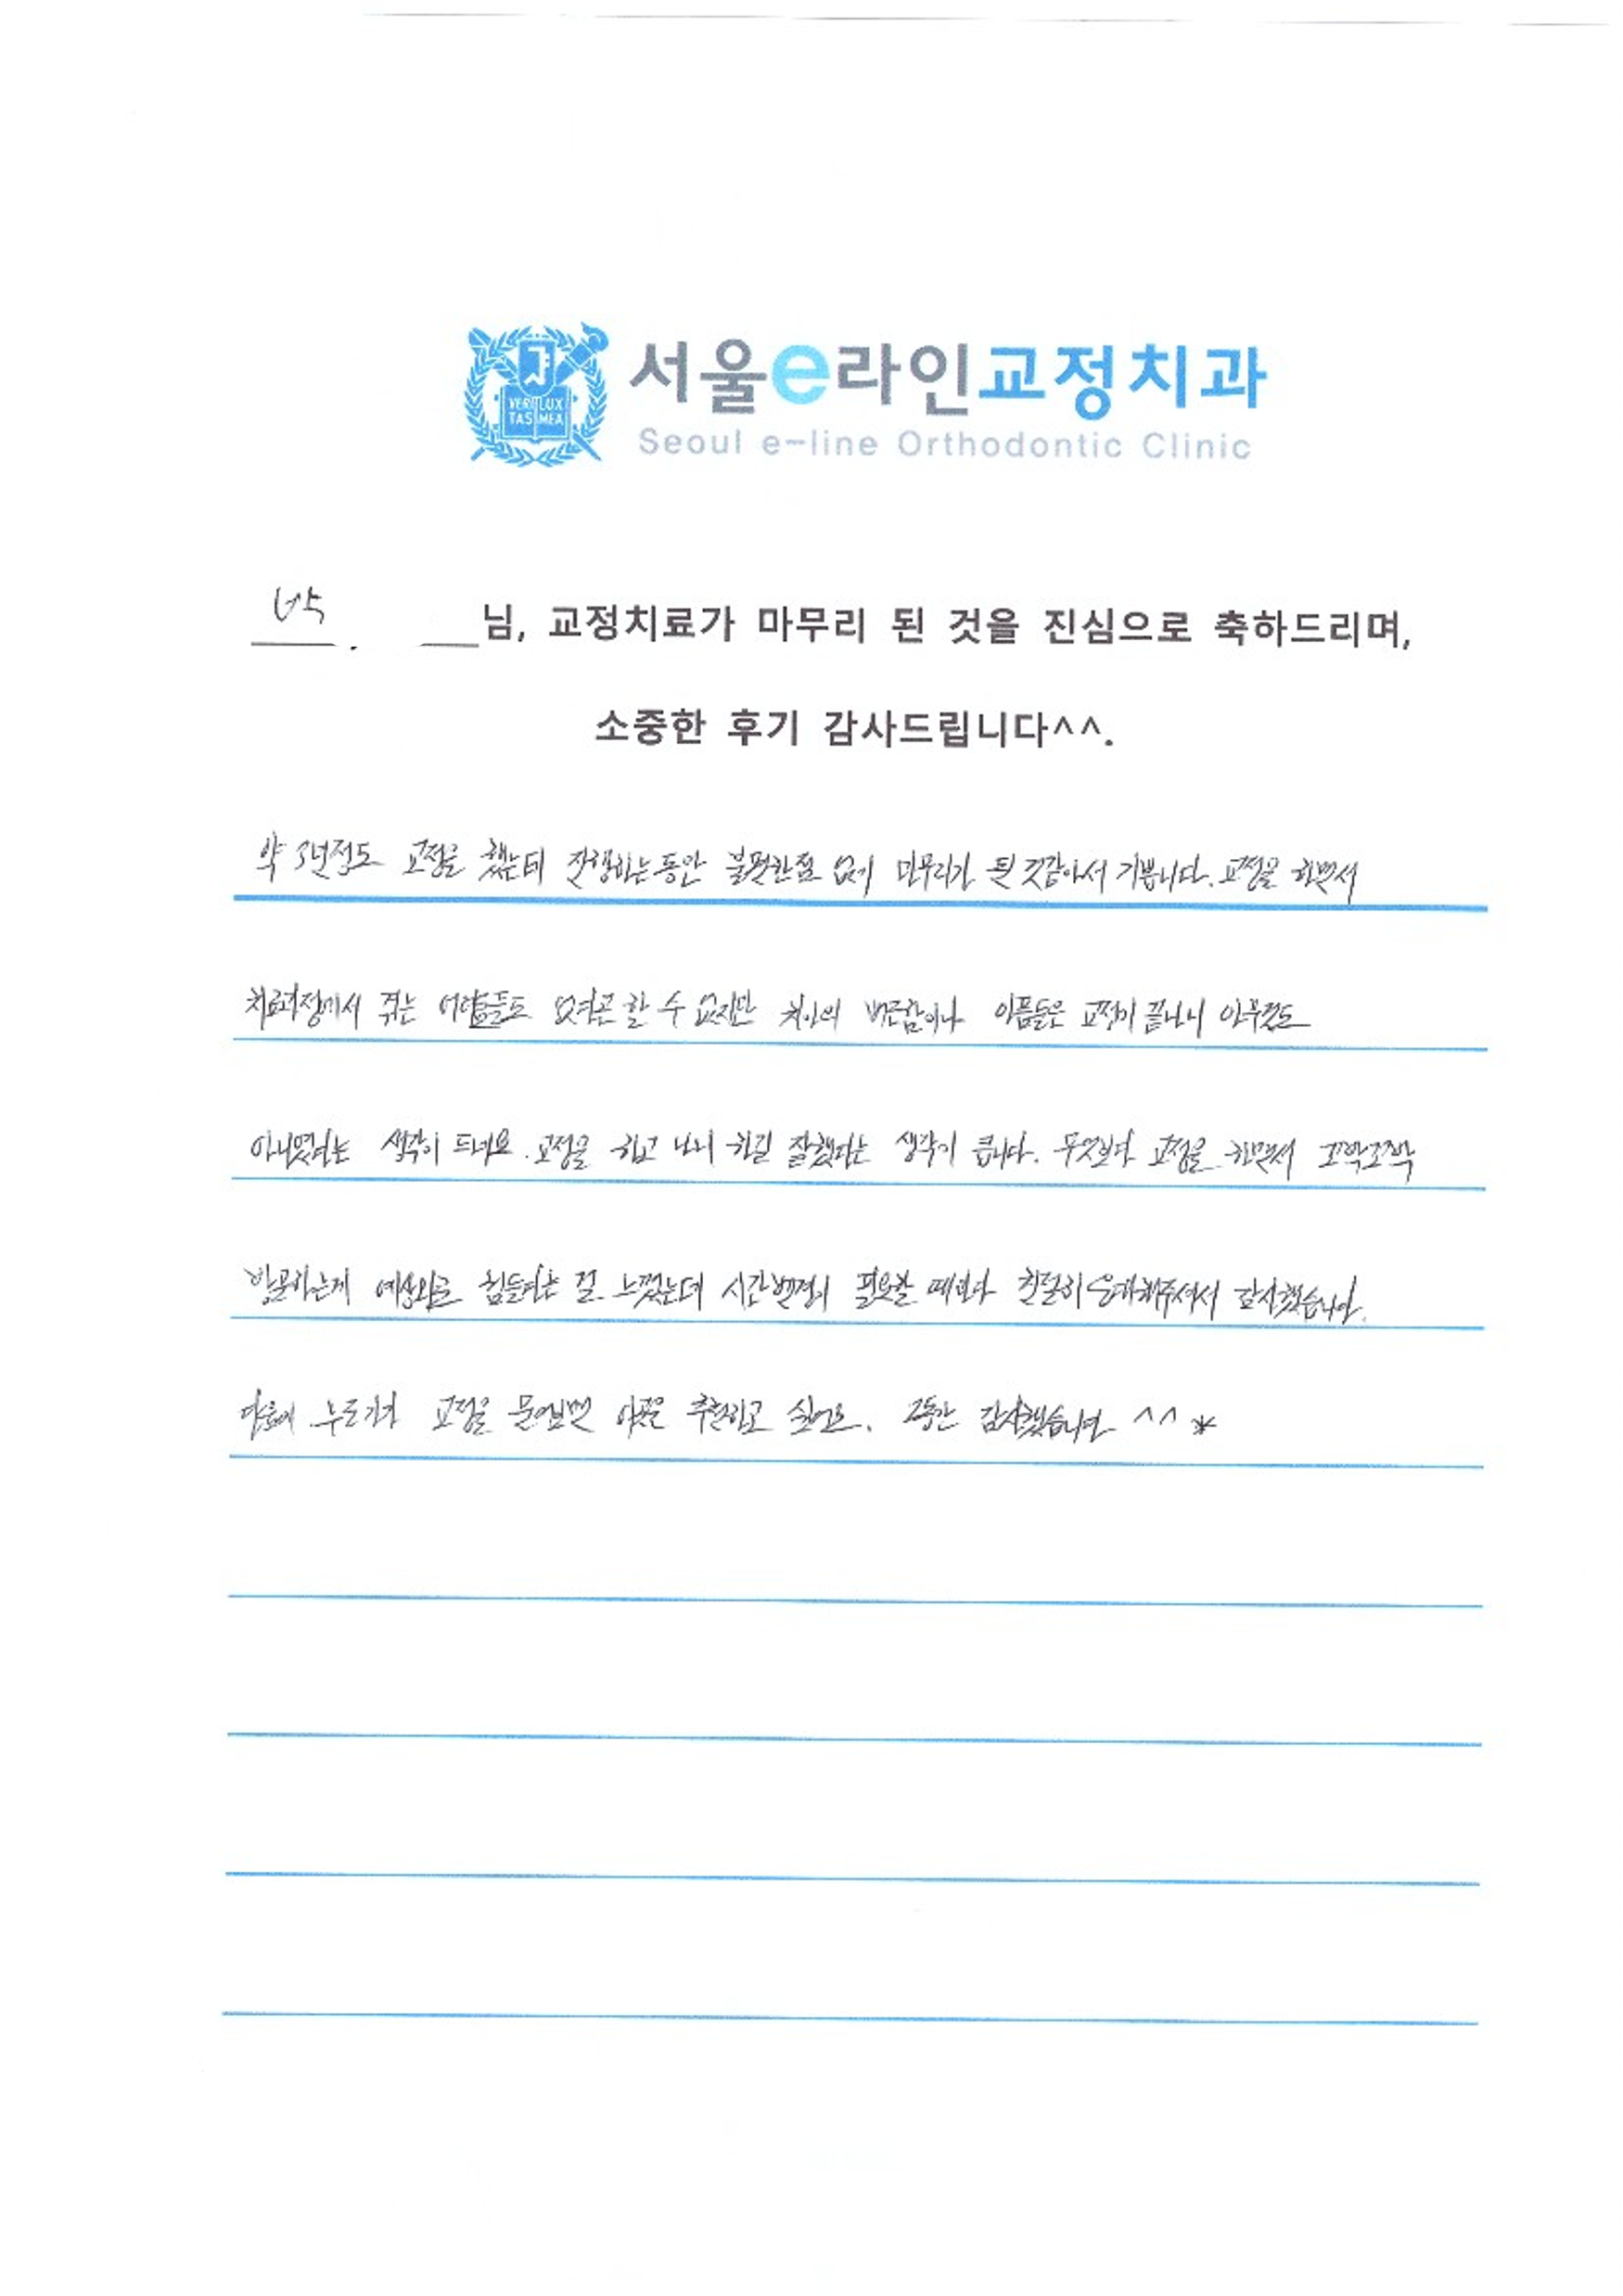 VERI LUX
TAS MEA
서울e라인교정치과
Seoul e-line Orthodontic Clinic
님, 교정치료가 마무리 된 것을 진심으로 축하드리며,
소중한 후기 감사드립니다^^.
약 3년정도 교정을 했는데 진행하는동안 불편한점 없이 마무리가 된 것같아서 기쁩니다. 교정을 하면서
치료과정에서 겪는 어려움들도 없다곤 할 수 없지만 치아의 아픔들은 교정이 끝나니 아무것도
아니였다는 생각이 드네요. 교정을 하고 나니 하길 잘했다는 생각이 큽니다. 무엇보다 교정을 하면서 꼬박꼬박
방문하는게 예상외로 힘들다는 걸 느꼈는데 시간변경이 필요할 때마다 친절히 응대해주셔서 감사했습니다.
다음에 누군가 교정을 문의하면 추천하고 싶어요. 그동안 감사했습니다 ^^ *